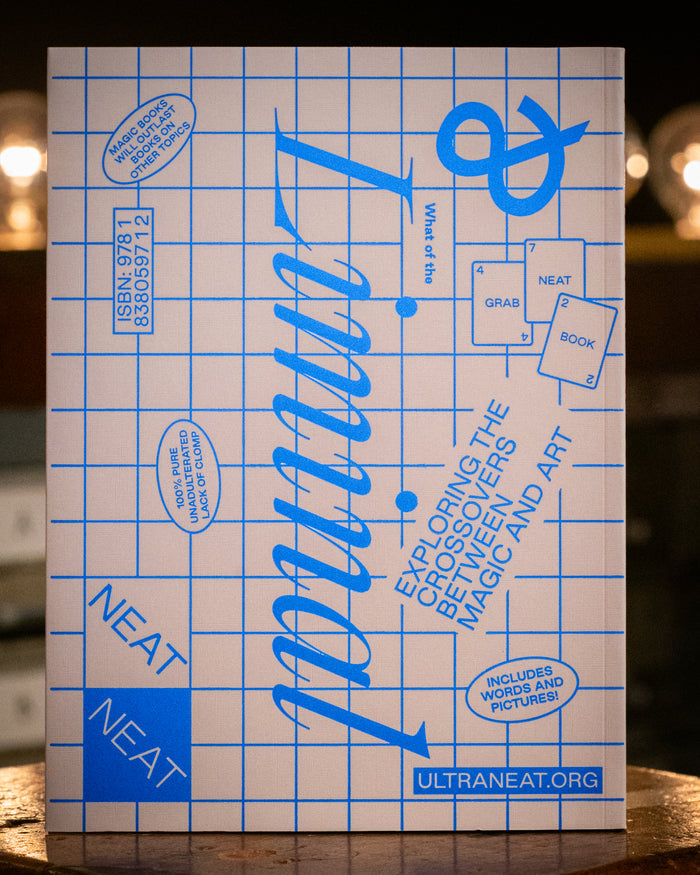 MAGIC BOOKS
WILL OUTLAST
BOOKS ON
OTHER TOPICS
&
What of the
Liminal
ISBN: 978 1
838059712
4
GRAB
4
7
NEAT
2
BOOK
2
EXPLORING THE
CROSSOVERS
BETWEEN
MAGIC AND ART
100% PURE
UNADULTERATED
LACK OF CLOMP
NEAT
NEAT
INCLUDES
WORDS AND
PICTURES!
ULTRANEAT.ORG